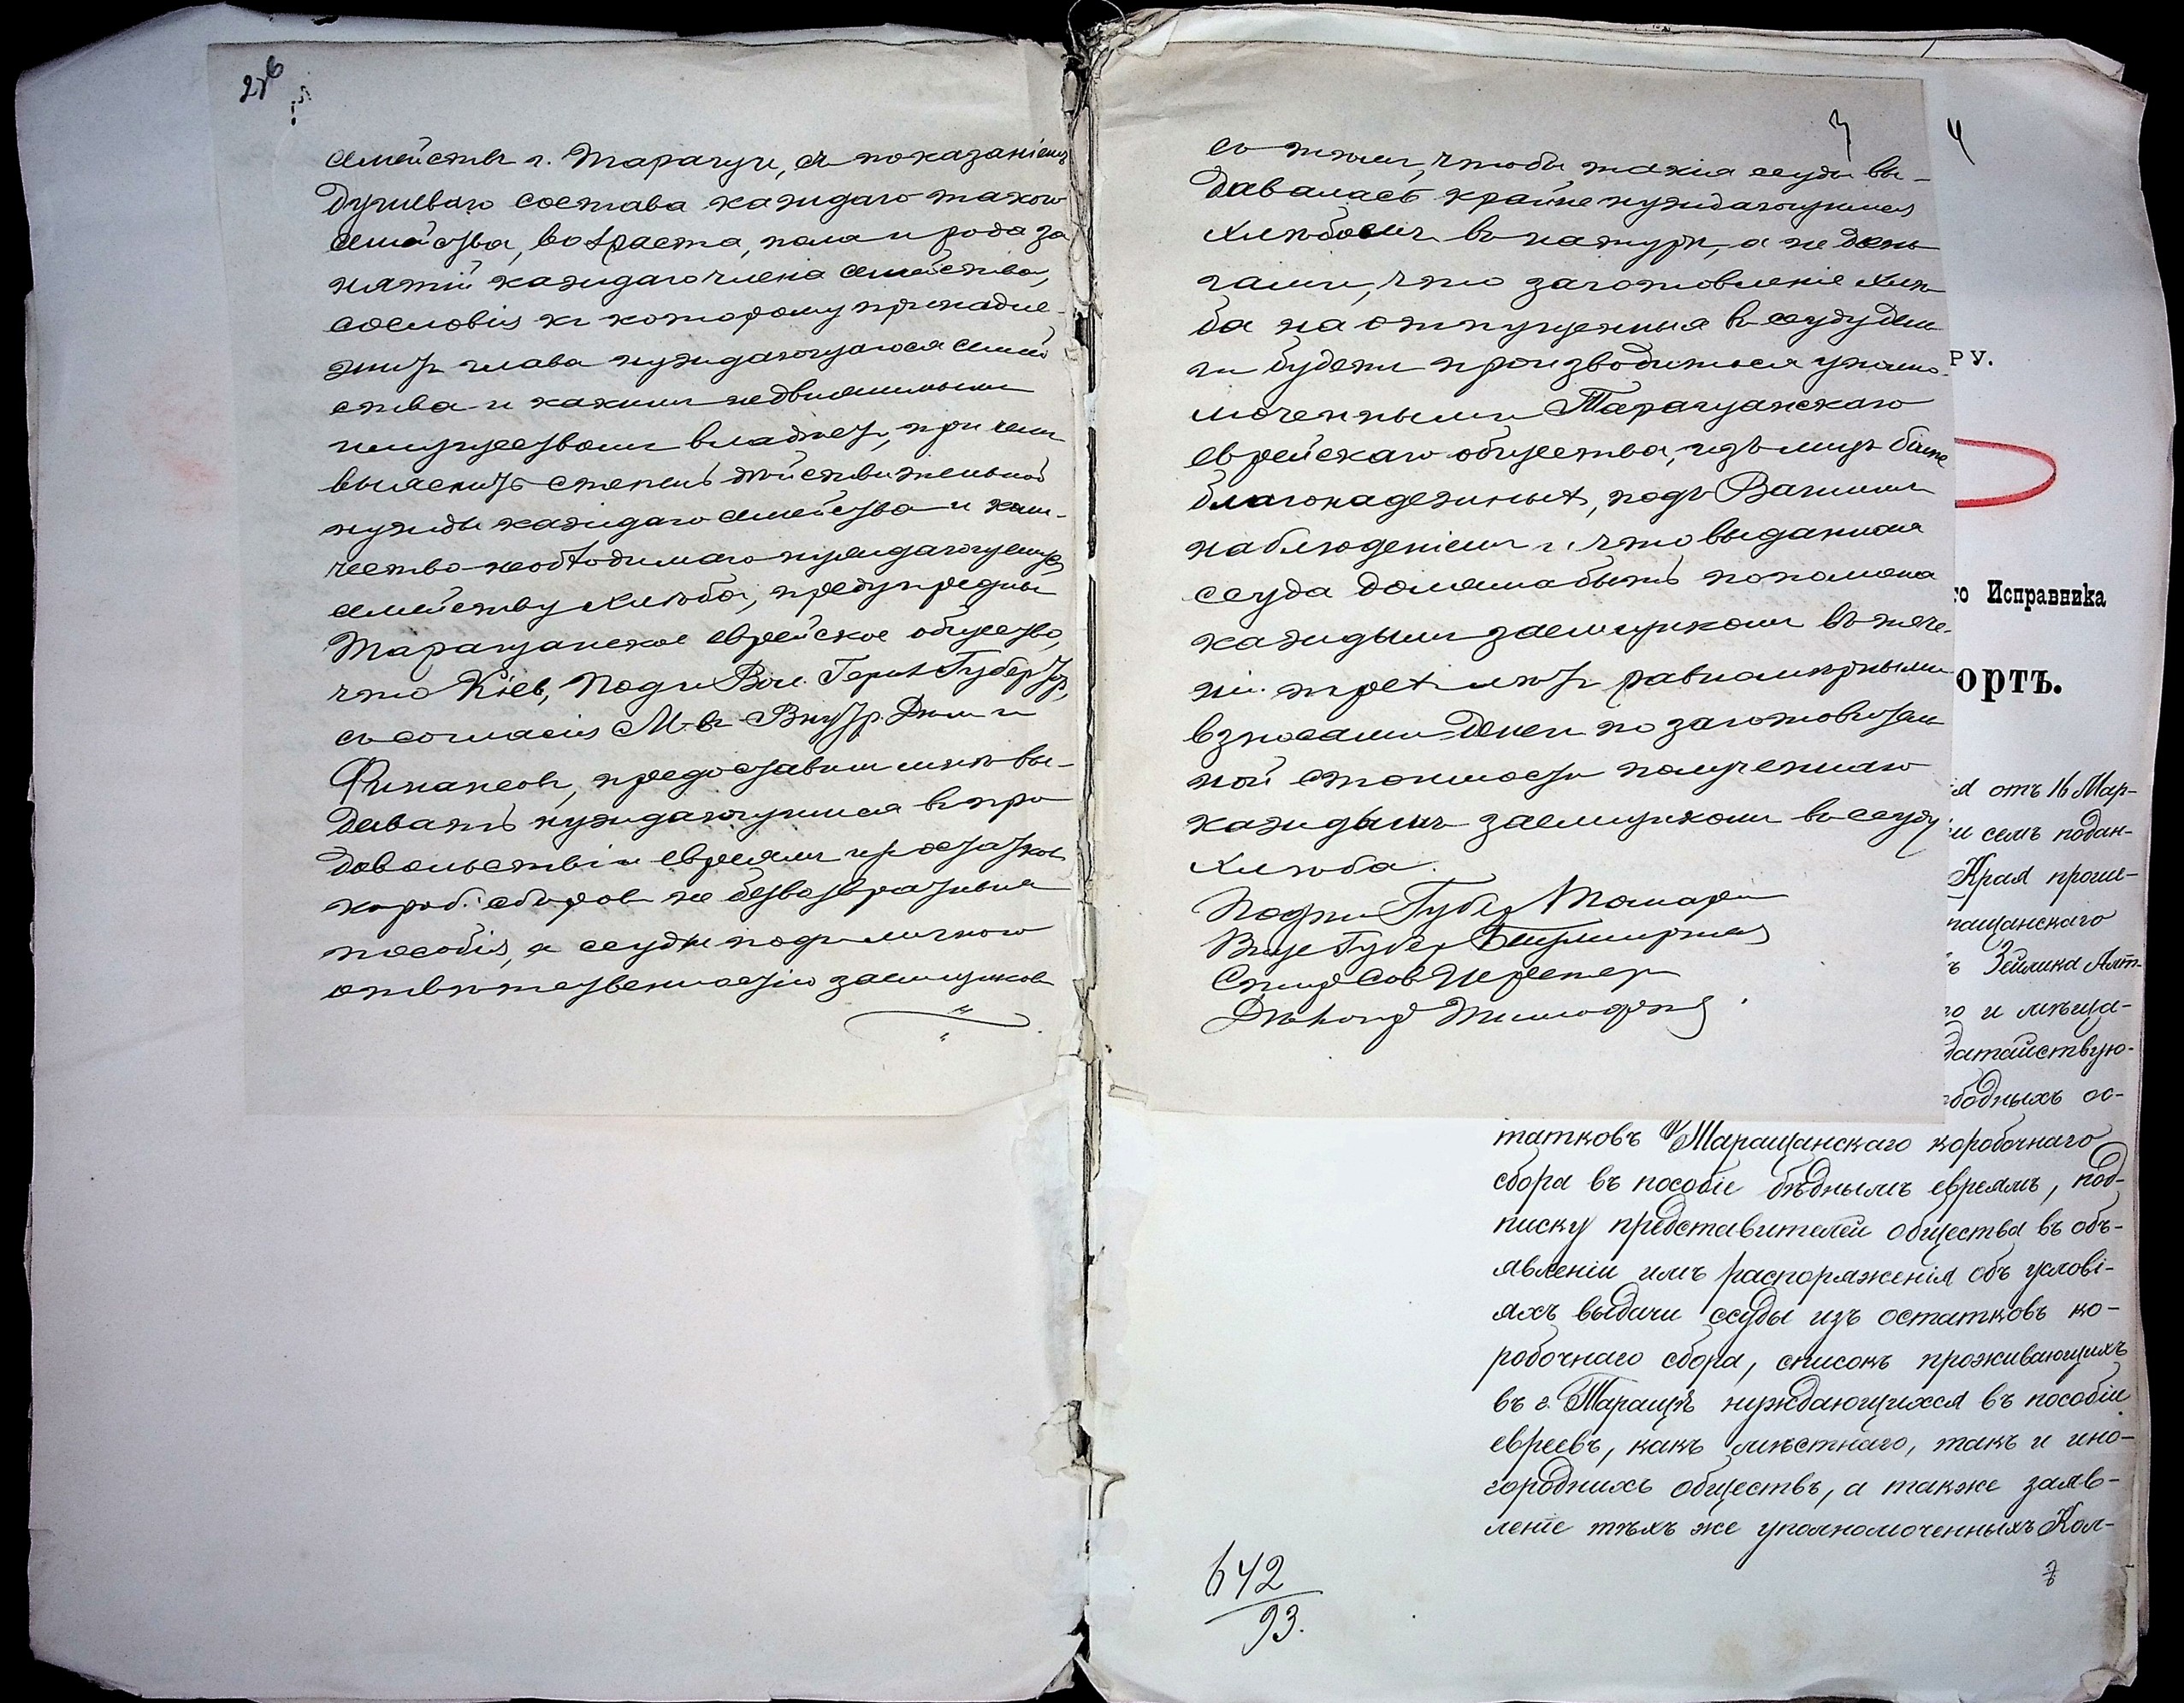 276
семействъ г. Таращи, съ показаніемъ
душеваго состава каждаго такого
семейства, возраста, пола и рода за
нятій каждаго члена семейства,
сословія къ которому принадле-
житъ глава нуждающагося семей
ства и какимъ недвижимымъ
имуществомъ владѣетъ, при чемъ
выяснить степень дѣйствительной
нужды каждаго семейства и коли-
чество необходимаго нуждающемуся
семейству хлѣба, предупредивъ
Таращанское еврейское общество,
что Кіев, Под. и Вол. Генер. Губернат.,
съ согласія М-въ Внутр. Дѣлъ и
Финансовъ, предоставилъ мнѣ вы-
давать нуждающимся въ про
довольствіи евреямъ изъ остатков
короб. сборовъ не безвозвратныя
пособія, а ссуды подъ личною
отвѣтственностію заемщиковъ
3
4
съ тѣмъ, чтобы такія ссуды вы-
давалась крайне нуждающимся
хлѣбомъ въ натурѣ, а не день
гами, что заготовленіе хлѣ
ба на отпущенныя въ ссуду день
ги будетъ производиться уполно-
моченными Таращанскаго
еврейскаго общества, изъ лицъ болѣе
благонадежныхъ, подъ Вашимъ
наблюденіемъ и что выданная
ссуда должна быть пополнена
каждымъ заемщикомъ въ тече-
ніи трехъ лѣтъ равномѣрными
взносами денегъ по заготовитель
ной стоимости полученнаго
каждымъ заемщикомъ въ ссуду
хлѣба.
Подписи Губер Томара
Вице Губер
Стар Сов
Дѣлопр
РУ.
го Исправника
ортъ.
ія отъ 16 Мар-
и семъ подан-
Края проше-
ращанскаго
ъ Зейлика Алт-
го и мѣща-
датайствую-
ободныхъ ос-
татковъ Таращанскаго коробочнаго
сбора въ пособіе бѣднымъ евреямъ, под-
писку представителей общества въ объ-
явленіи имъ распоряженія объ услові-
яхъ выдачи ссуды изъ остатковъ ко-
робочнаго сбора, списокъ проживающихъ
въ г. Таращѣ нуждающихся въ пособіи
евреевъ, какъ мѣстнаго, такъ и ино-
городнихъ обществъ, а также заяв-
леніе тѣхъ же уполномоченныхъ Кол-
642
93.